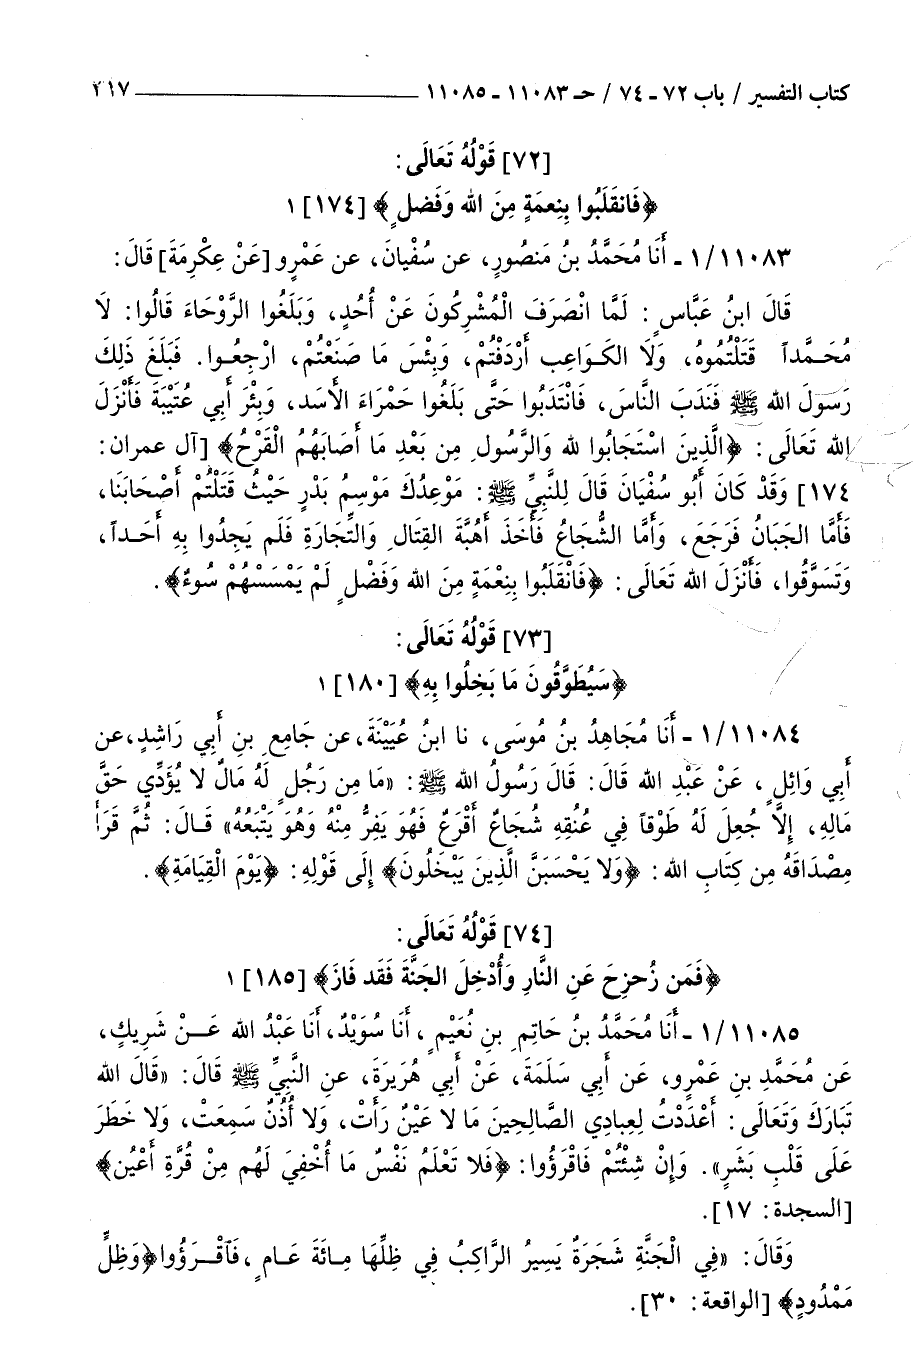 كتاب التفسير / باب ٧٢ - ٧٤ / حـ ١١٠٨٣ - ١١٠٨٥ ــــــ ٣١٧
[٧٢] قَوْلُهُ تَعَالَى:
﴿فَانقَلَبُوا بِنِعمَةٍ مِنَ الله وَفَضلٍ﴾ [١٧٤] ١
١/١١٠٨٣ - أَنَا مُحَمَّدُ بنُ مَنصُورٍ، عن سُفْيانَ، عن عَمْرٍو [عَنْ عِكْرِمَةَ] قَالَ:
قَالَ ابنُ عَبَّاسٍ: لَمَّا انْصَرَفَ الْمُشْرِكُونَ عَنْ أُحُدٍ، وَبَلَغُوا الرَّوْحَاءَ قَالُوا: لَا
مُحَمَّداً قَتَلْتُمُوهُ، وَلَا الكَوَاعِب أَرْدَفْتُمْ، وَبِئْسَ مَا صَنَعْتُمْ، ارْجِعُوا. فَبَلَغَ ذَلِكَ
رَسولَ الله ﷺ فَنَدَبَ النَّاسَ، فَانْتَدَبُوا حَتَّى بَلَغُوا حَمْرَاءَ الأَسَد، وَبِئْرَ أَبي عُتَيْبَةَ فَأَنْزَلَ
الله تَعَالَى: ﴿الَّذِينَ اسْتَجَابُوا لله وَالرَّسُولِ مِن بَعْدِ مَا أَصَابَهُمُ الْقَرْحُ﴾ [آل عمران:
١٧٤] وَقَدْ كَانَ أَبُو سُفْيَانَ قَالَ لِلنَّبِيِّ ﷺ: مَوْعِدُكَ مَوْسِمُ بَدْرٍ حَيْثُ قَتَلْتُمْ أَصْحَابَنَا،
فَأَمَّا الجَبَانُ فَرَجَعَ، وَأَمَّا الشُّجَاعُ فَأَخَذَ أُهْبَةَ القِتَالِ وَالتِّجَارَةِ فَلَم يَجِدُوا بِهِ أَحَداً،
وَتَسَوَّقُوا، فَأَنْزَلَ الله تَعَالَى: ﴿فَانْقَلَبُوا بِنِعْمَةٍ مِنَ الله وَفَضْلٍ لَمْ يَمْسَسْهُمْ سُوءٌ﴾.
[٧٣] قَوْلُهُ تَعَالَى:
﴿سَيُطَوَّقُونَ مَا بَخِلُوا بِهِ﴾ [١٨٠] ١
١/١١٠٨٤ - أَنَا مُجَاهِدُ بنُ مُوسَى، نا ابنُ عُيَيْنَةَ، عن جَامِعِ بنِ أَبي رَاشِدٍ، عن
أَبي وَائِلٍ، عَنْ عَبْدِ الله قَالَ: قَالَ رَسُولُ الله ﷺ: «مَا مِن رَجُلٍ لَهُ مَالٌ لا يُؤَدِّي حَقَّ
مَالِهِ، إِلاَّ جُعِلَ لَهُ طَوْقاً فِي عُنُقِهِ شُجَاعٌ أَقْرَعُ فَهُوَ يَفِرُّ مِنْهُ وَهُوَ يَتْبَعُهُ» قَالَ: ثُمَّ قَرَأَ
مِصْدَاقَهُ مِن كِتَابِ الله: ﴿وَلا يَحْسَبَنَّ الَّذِينَ يَبْخَلُونَ﴾ إِلَى قَوْلِهِ: ﴿يَوْمَ الْقِيَامَةِ﴾.
[٧٤] قَوْلُهُ تَعَالَى:
﴿فَمَن زُحزِحَ عَنِ النَّارِ وَأُدْخِلَ الجَنَّةَ فَقَد فَازَ﴾ [١٨٥] ١
١/١١٠٨٥ - أَنَا مُحَمَّدُ بنُ حَاتِمِ بنِ نُعَيْمٍ، أَنَا سُوَيْدٌ، أَنَا عَبْدُ الله عَنْ شَرِيكٍ،
عَن مُحَمَّدِ بنِ عَمْرٍو، عَن أَبِي سَلَمَةَ، عَنْ أَبِي هُرَيرَةَ، عنِ النَّبِيِّ ﷺ قَالَ: «قَالَ الله
تَبَارَكَ وَتَعَالَى: أَعْدَدْتُ لِعِبادِي الصَّالِحِينَ مَا لا عَيْنٌ رَأَتْ، وَلا أُذُنٌ سَمِعَتْ، وَلا خَطَرَ
عَلَى قَلْبِ بَشَرٍ». وَإِنْ شِئْتُمْ فَاقْرَؤُوا: ﴿فَلا تَعْلَمُ نَفْسٌ مَا أُخْفِيَ لَهُم مِنْ قُرَّةِ أَعْيُن﴾
[السجدة: ١٧].
وَقَالَ: «فِي الْجَنَّةِ شَجَرَةٌ يَسِيرُ الرَّاكِبُ فِي ظِلِّهَا مِائَةَ عَامٍ، فَاقْرَؤُوا ﴿وَظِلٍّ
مَمْدُودٍ﴾ [الواقعة: ٣٠].